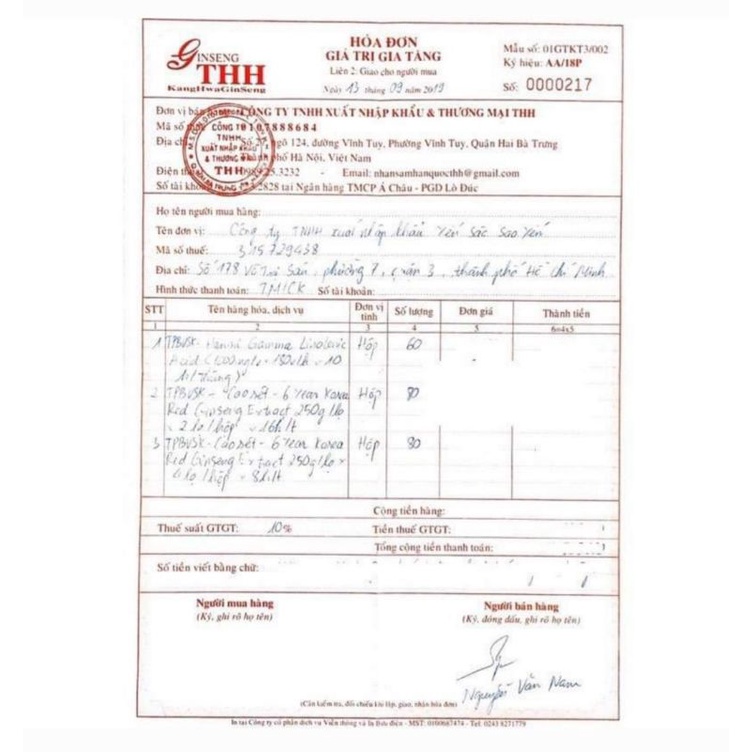 GINSENG
THH
KangHwaGinSeng
HÓA ĐƠN
GIÁ TRỊ GIA TĂNG
Liên 2: Giao cho người mua
Ngày 13 tháng 09 năm 2019
Mẫu số: 01GTKT3/002
Ký hiệu: AA/18P
Số: 0000217
Đơn vị CÔNG TY TNHH XUẤT NHẬP KHẨU & THƯƠNG MẠI THH
Mã số 0107888684
Địa chỉ ngõ 124, đường Vĩnh Tuy, Phường Vĩnh Tuy, Quận Hai Bà Trưng
phố Hà Nội, Việt Nam
Điện 3232 - Email: nhansamhanquocthh@gmail.com
Số tài 2828 tại Ngân hàng TMCP Á Châu - PGD Lò Đúc
CÔNG TY
TNHH
XUẤT NHẬP KHẨU
& THƯƠNG MẠI
THH
Họ tên người mua hàng:
Tên đơn vị: Công ty TNHH xuất nhập khẩu Yến Sắc Sao Yến
Mã số thuế: 315729438
Địa chỉ: Số 178 Võ Thị Sáu, phường 7, quận 3, thành phố Hồ Chí Minh
Hình thức thanh toán: TM/CK Số tài khoản:
STT Tên hàng hóa, dịch vụ Đơn vị tính Số lượng Đơn giá Thành tiền
1 2 3 4 5 6=4x5
1 TPBVSK- Hansa Gamma Linolenic Hộp 60
Acid
2 TPBVSK - Cao sét - 6 Year Korea Hộp 80
Red Ginseng Extract 250g/lọ
x 2 lọ/hộp x 16h/t
3 TPBVSK- Cao sét - 6 Year Korea Hộp 80
Red Ginseng Extract 250g/lọ x
4 lọ/hộp x 8h/t
Cộng tiền hàng:
Thuế suất GTGT: 10% Tiền thuế GTGT:
Tổng cộng tiền thanh toán:
Số tiền viết bằng chữ:
Người mua hàng
(Ký, ghi rõ họ tên)
Người bán hàng
(Ký, đóng dấu, ghi rõ họ tên)
Nguyễn Văn Nam
(Cần kiểm tra, đối chiếu khi lập, giao, nhận hóa đơn)
In tại Công ty cổ phần dịch vụ Viễn thông và In Bưu điện - MST: 0100687474 - Tel: 0243 8271779